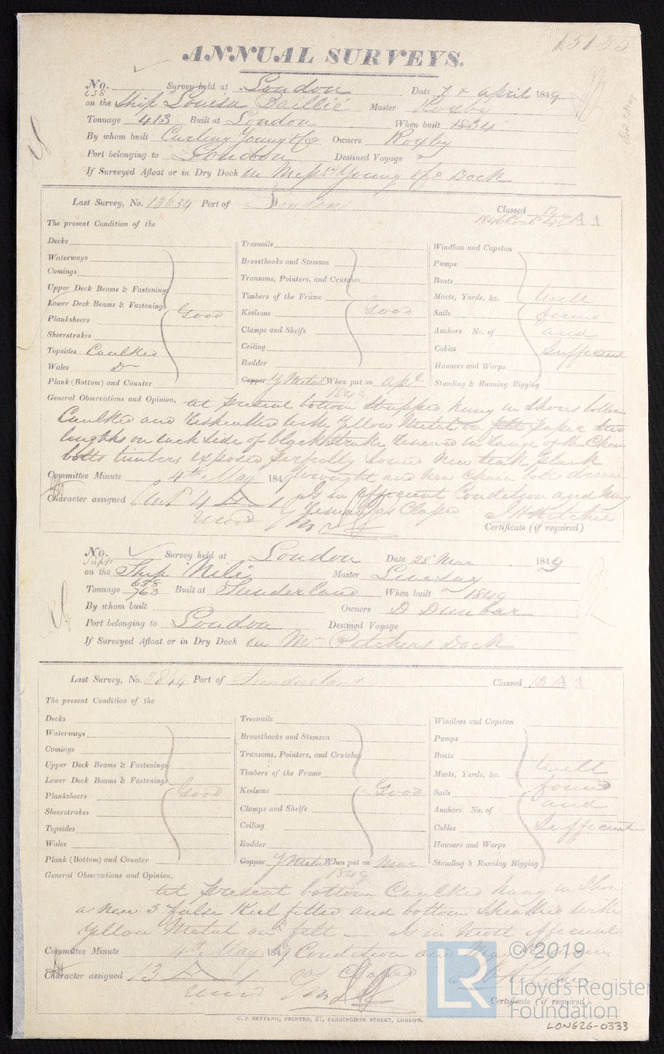 15155
ANNUAL SURVEYS.
No. Survey held at London Date 7th April 1849
on the Ship "Louisa Baillie" Master Roxby
Tonnage 413 Built at London When built 1834
By whom built Curling Young & Co Owners Roxby
Port belonging to London Destined Voyage
If Surveyed Afloat or in Dry Dock in Messrs Young & Co Dock
Last Survey, No. 13634 Port of London Classed A 1
The present Condition of the
Decks
Waterways
Comings
Upper Deck Beams & Fastenings
Lower Deck Beams & Fastenings
Planksheers
Sheerstrakes
Good
Topsides Caulked
Wales Do
Plank (Bottom) and Counter
Treenails
Breasthooks and Stemson
Transoms, Pointers, and Crutches
Timbers of the Frame
Keelsons
Clamps and Shelfs
Ceiling
Rudder
Good
Copper Y Metal When put on Apl 1849
Windlass and Capston
Pumps
Boats
Masts, Yards, &c.
Sails
Anchors No. of
Cables
Hawsers and Warps
Standing & Running Rigging
Well
found
and
Sufficient
General Observations and Opinion, at present bottom stripped hung in Shores bottom
Caulked and resheathed with Yellow Metal on paper two
lengths on each side of black strake renewed in range of the Chain
bolts timbers exposed perfectly sound new teak plank
Committee Minute 4th May 1849 wrought and new Chain bolts driven
Character assigned is in efficient Condition and may
remain as Classed
Certificate (if required)
No. Survey held at London Date 28 Mar 1849
on the Ship "Nile" Master Livesay
Tonnage 658 763 Built at Sunderland When built 1849
By whom built Owners D Dunbar
Port belonging to London Destined Voyage
If Surveyed Afloat or in Dry Dock in Mr Pitchers Dock
Last Survey, No. Port of Sunderland Classed 13 A 1
The present Condition of the
Decks
Waterways
Comings
Upper Deck Beams & Fastenings
Lower Deck Beams & Fastenings
Planksheers
Sheerstrakes
Topsides
Wales
Plank (Bottom) and Counter
Good
Treenails
Breasthooks and Stemson
Transoms, Pointers, and Crutches
Timbers of the Frame
Keelsons
Clamps and Shelfs
Ceiling
Rudder
Good
Copper Y Metal When put on Mar 1849
Windlass and Capston
Pumps
Boats
Masts, Yards, &c.
Sails
Anchors No. of
Cables
Hawsers and Warps
Standing & Running Rigging
Well
found
and
Sufficient
General Observations and Opinion,
at present bottom Caulked hung in Shores
a New 3 false Keel fitted and bottom Sheathed with
Yellow Metal on felt is in Most Efficient
Committee Minute 4th May 1849 Condition and May
Character assigned 13 A 1 as Classed
Certificate (if required)
LR © 2019
Lloyd's Register
Foundation
LON626-0333